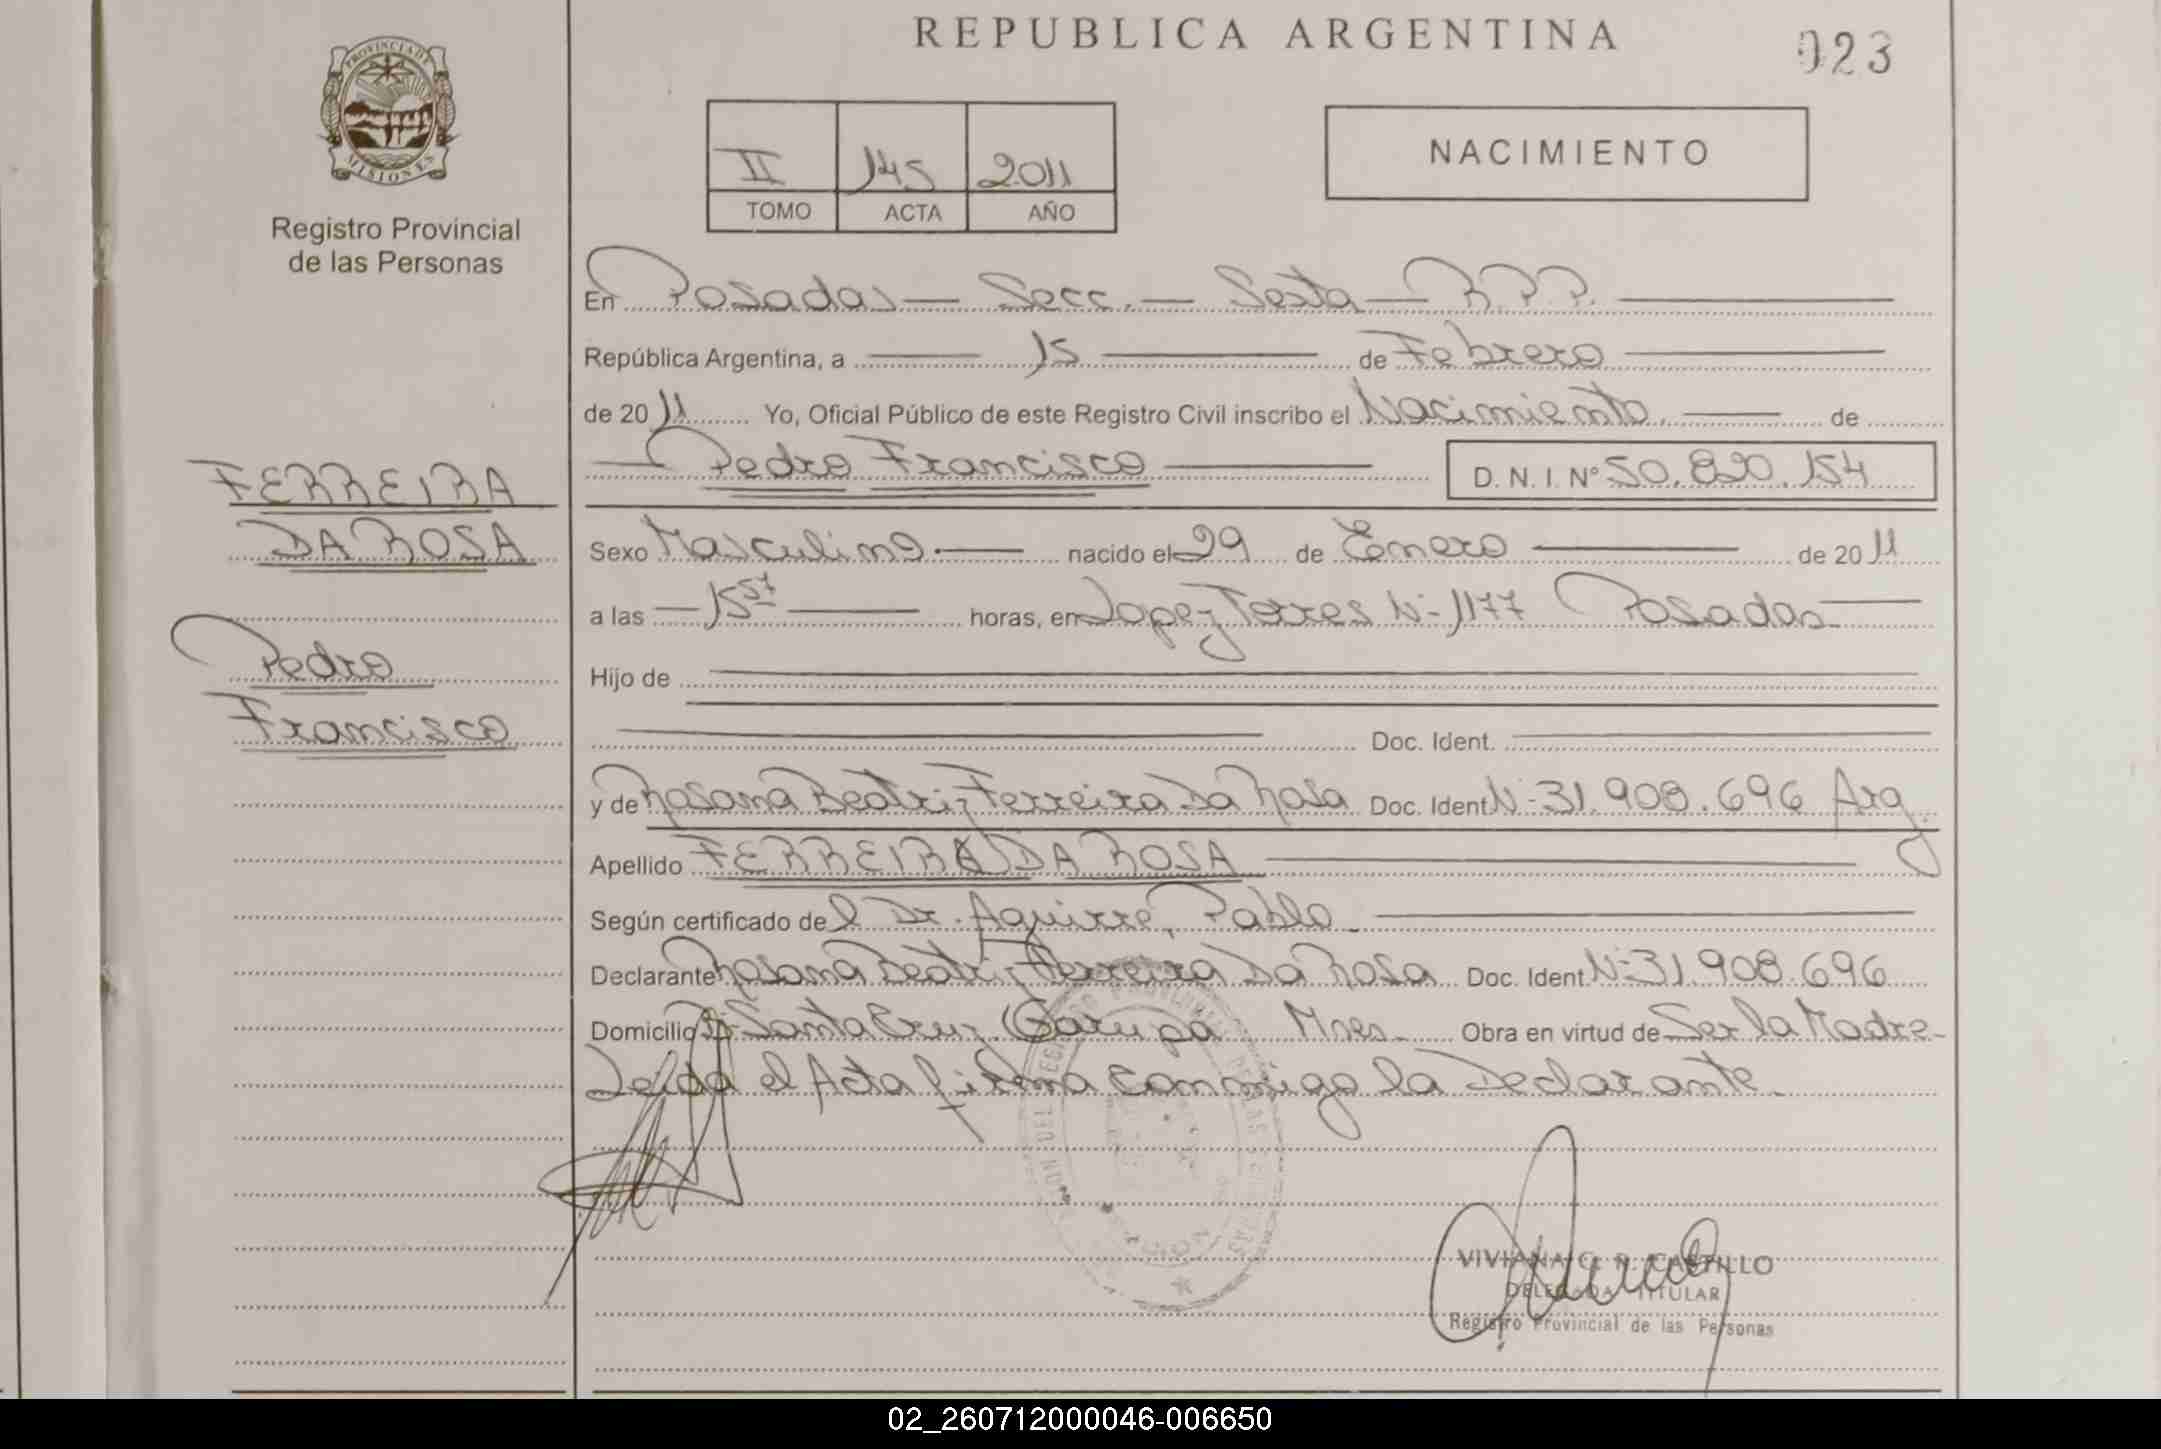 REPUBLICA ARGENTINA
023
PROVINCIA DE
MISIONES
Registro Provincial
de las Personas
II 145 2011
TOMO ACTA AÑO
NACIMIENTO
En Posadas — Secc. — Sexta — R.P.P.
República Argentina, a 15 de Febrero
de 2011 Yo, Oficial Público de este Registro Civil inscribo el Nacimiento. de
Pedro Francisco D. N. I. Nº 50.820.154
FERREIRA
DA ROSA
Pedro
Francisco
Sexo Masculino. nacido el 29 de Enero de 2011
a las 15 57 horas, en Lopez Torres Nº 1177 Posadas
Hijo de
Doc. Ident.
y de Rosana Beatriz Ferreira Da Rosa Doc. Ident Nº 31.908.696 Arg.
Apellido FERREIRA DA ROSA
Según certificado del Dr. Aguirre, Pablo.
Declarante Rosana Beatriz Ferreira Da Rosa Doc. Ident. Nº 31.908.696
Domicilio Bº Santa Cruz. Garupa Mnes. Obra en virtud de Ser la Madre-
Leida el Acta firma conmigo la Declarante.
VIVIANA CASTILLO
DELEGADA TITULAR
Registro Provincial de las Personas
02_260712000046-006650